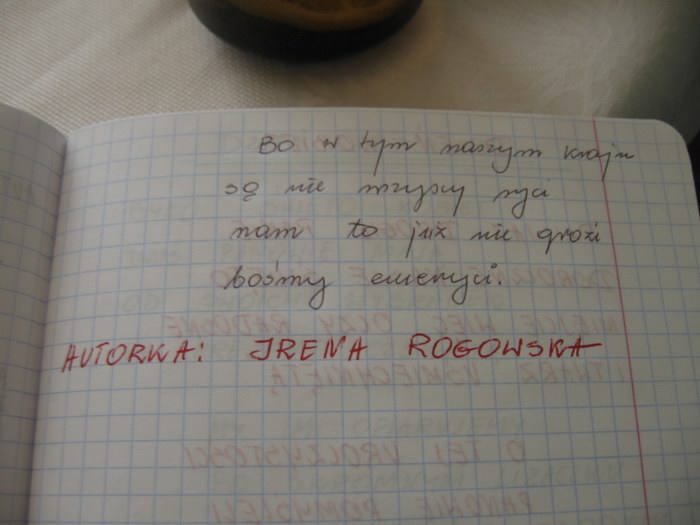 Bo w tym naszym kraju
są nie wszyscy syci
nam to już nie grozi
bośmy emeryci.
AUTORKA: IRENA ROGOWSKA